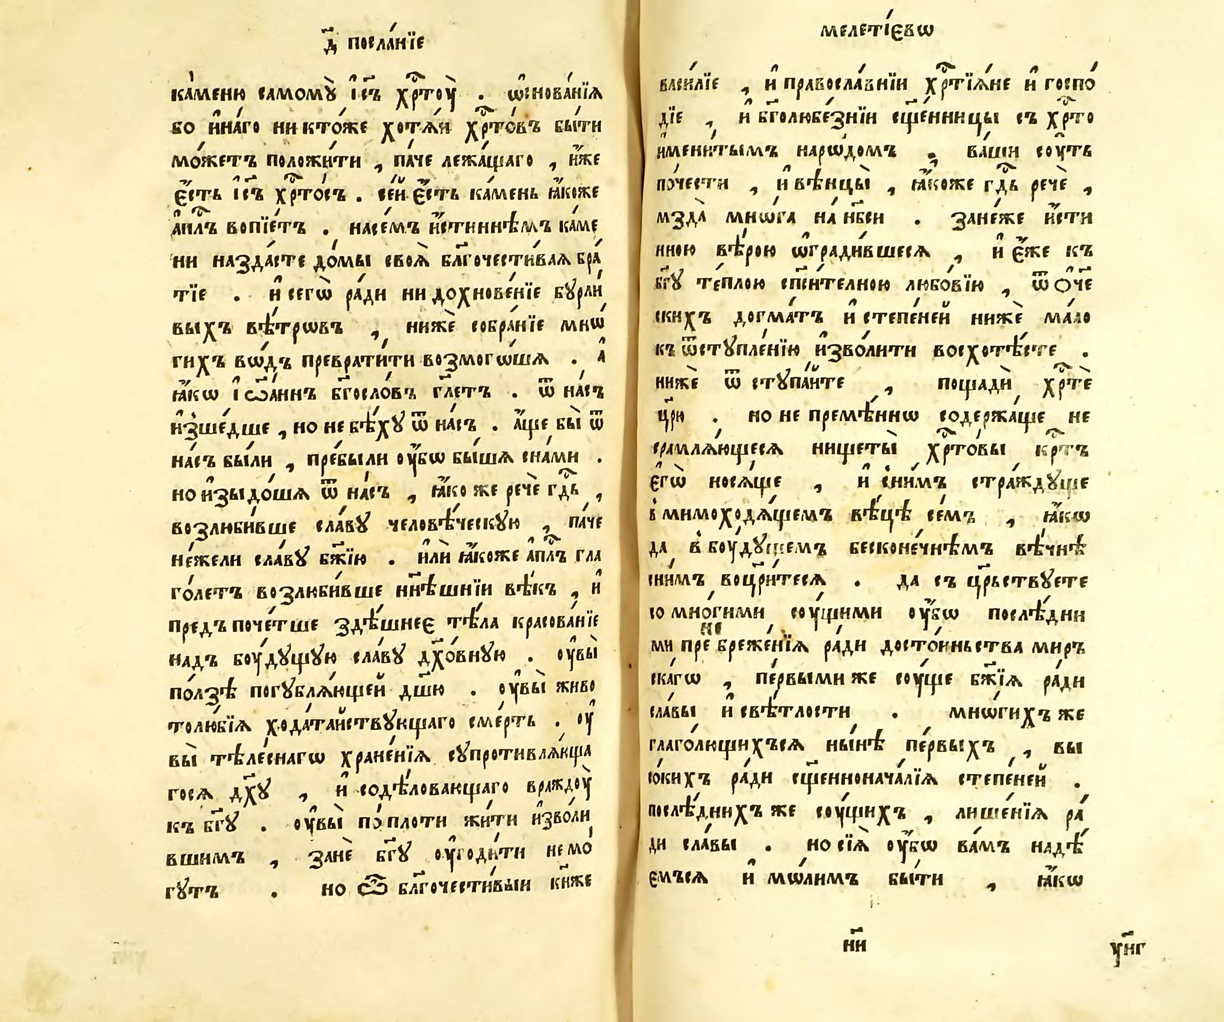 д҃ посла́нїе
ка́меню самомꙋ̀ і҆с҃ъ хр҇тоу̀ . ѡ҆снова́нїѧ
бо и҆на́го никто́же хотѧ́й хр҇то́въ бы́ти
мо́жетъ положи́ти , па́че лежа́щаго , и҆́же
є҆́сть і҆с҃ъ хр҇то́съ . се́й є҆́сть ка́мень ꙗ҆́коже
а҆п҇лъ вопїе́тъ . насе́мъ и҆́стиннѣмъ ка́ме
ни назда́сте до́мы своѧ̀ бл҃гочести́ваѧ бра́
тїе . и҆ сегѡ̀ ра́ди ни дохнове́нїе бꙋ́рли
выхъ вѣ́трѡвъ , нижѐ собра́нїе мнѡ́
гихъ во́дъ преврати́ти возмого́шѧ . а҆̀
ꙗ҆́кѡ і҆ѡа́ннъ бг҃осло́въ гл҃етъ . ѿ на́съ
и҆зше́дше , но не бѣ́хꙋ ѿ на́съ . а҆́ще бы̀ ѿ
на́съ бы́ли , пре́были оу҆́бѡ бы́шѧ сна́ми .
но и҆зыдо́шѧ ѿ на́съ , ꙗ҆́ко же речѐ гд҇ь ,
возлюби́вше сла́вꙋ человѣ́ческꙋю , па́че
не́жели сла́вꙋ бж҃їю . и҆лѝ ꙗ҆́коже а҆п҇лъ гла
го́летъ возлюби́вше нн҃ѣшнїи вѣ́къ , и҆
предъ поче́тше здѣ́шнеє тѣ́ла красова́нїе
надъ боу́дꙋщꙋю сла́вꙋ дх҃о́внꙋю . оу҆вы̀
по́лзѣ погꙋблѧ́ющей дш҃ю . оу҆вы̀ живо
толю́бїѧ хода́тайствꙋющаго сме́рть . оу҆
вы̀ тѣле́снагѡ хране́нїѧ сꙋпротивлѧ́юща
госѧ дх҃ꙋ , и҆ содѣ́ловающаго враждоу̀
къ бг҃ꙋ . оу҆вы̀ по пло́ти жи́ти и҆зво́ли
вшимъ , занѐ бг҃ꙋ оу҆годи́ти не мо́
гꙋтъ . но ѽ бл҃гочести́выи кн҃же
меле́тїєвѡ
васи́лїе , и҆ правосла́внїи хр҇тїѧ́не и҆ госпо́
дїе , и҆ бг҃олюбе́знїи сщ҃е́нницы съ хр҇то
и҆мени́тымъ наро́домъ , ва́ши соу́ть
по́чести , и҆ вѣнцы̀ , ꙗ҆́коже гд҇ь речѐ ,
мзда̀ мно́га на нб҃си . зане́же и҆́сти
нною вѣ́рою ѡ҆гради́вшесѧ , и҆ є҆́же къ
бг҃ꙋ те́плою сп҃си́телною любо́вїю , ѿ ѻ҆́че
скихъ догма́тъ и҆ степе́ней нижѐ ма́ло
къ ѿстꙋпле́нїю и҆зво́лити восхотѣ́сте .
нижѐ ѿ стꙋпа́йте , пощадѝ хр҇тѐ
цр҃ю . но не премѣ́ннѡ содержа́ще не
срамлѧ́ющесѧ нищеты̀ хр҇то́вы кр҇тъ
є҆гѡ̀ носѧ́ще , и҆ сни́мъ стра́ждꙋще
в҆ мимоходѧ́щемъ вѣ́цѣ се́мъ , ꙗ҆́кѡ
да в҆ боу́дꙋщемъ бесконе́чнѣмъ вѣ́чнѣ
сни́мъ воцр҃и́тесѧ . да съ цр҇ьствꙋете
со мно́гими соу́щими оу҆́бѡ послѣ́дни
ми пре не бреже́нїѧ ра́ди досто́иньства миръ
скагѡ , пе́рвыми же соу́ще бж҃їѧ ра́ди
сла́вы и҆ свѣ́тлости . мно́гихъ же
глаго́лющихъсѧ ны́нѣ пе́рвыхъ , вы
со́кихъ ра́ди сщ҃енноначалїѧ степе́ней .
послѣ́днихъ же соу́щихъ , лише́нїѧ ра́
ди сла́вы . но сїѧ̀ оу҆́бѡ ва́мъ надѣ́
ємъсѧ и҆ мо́лимъ бы́ти , ꙗ҆́кѡ
н҃и
ун҃г